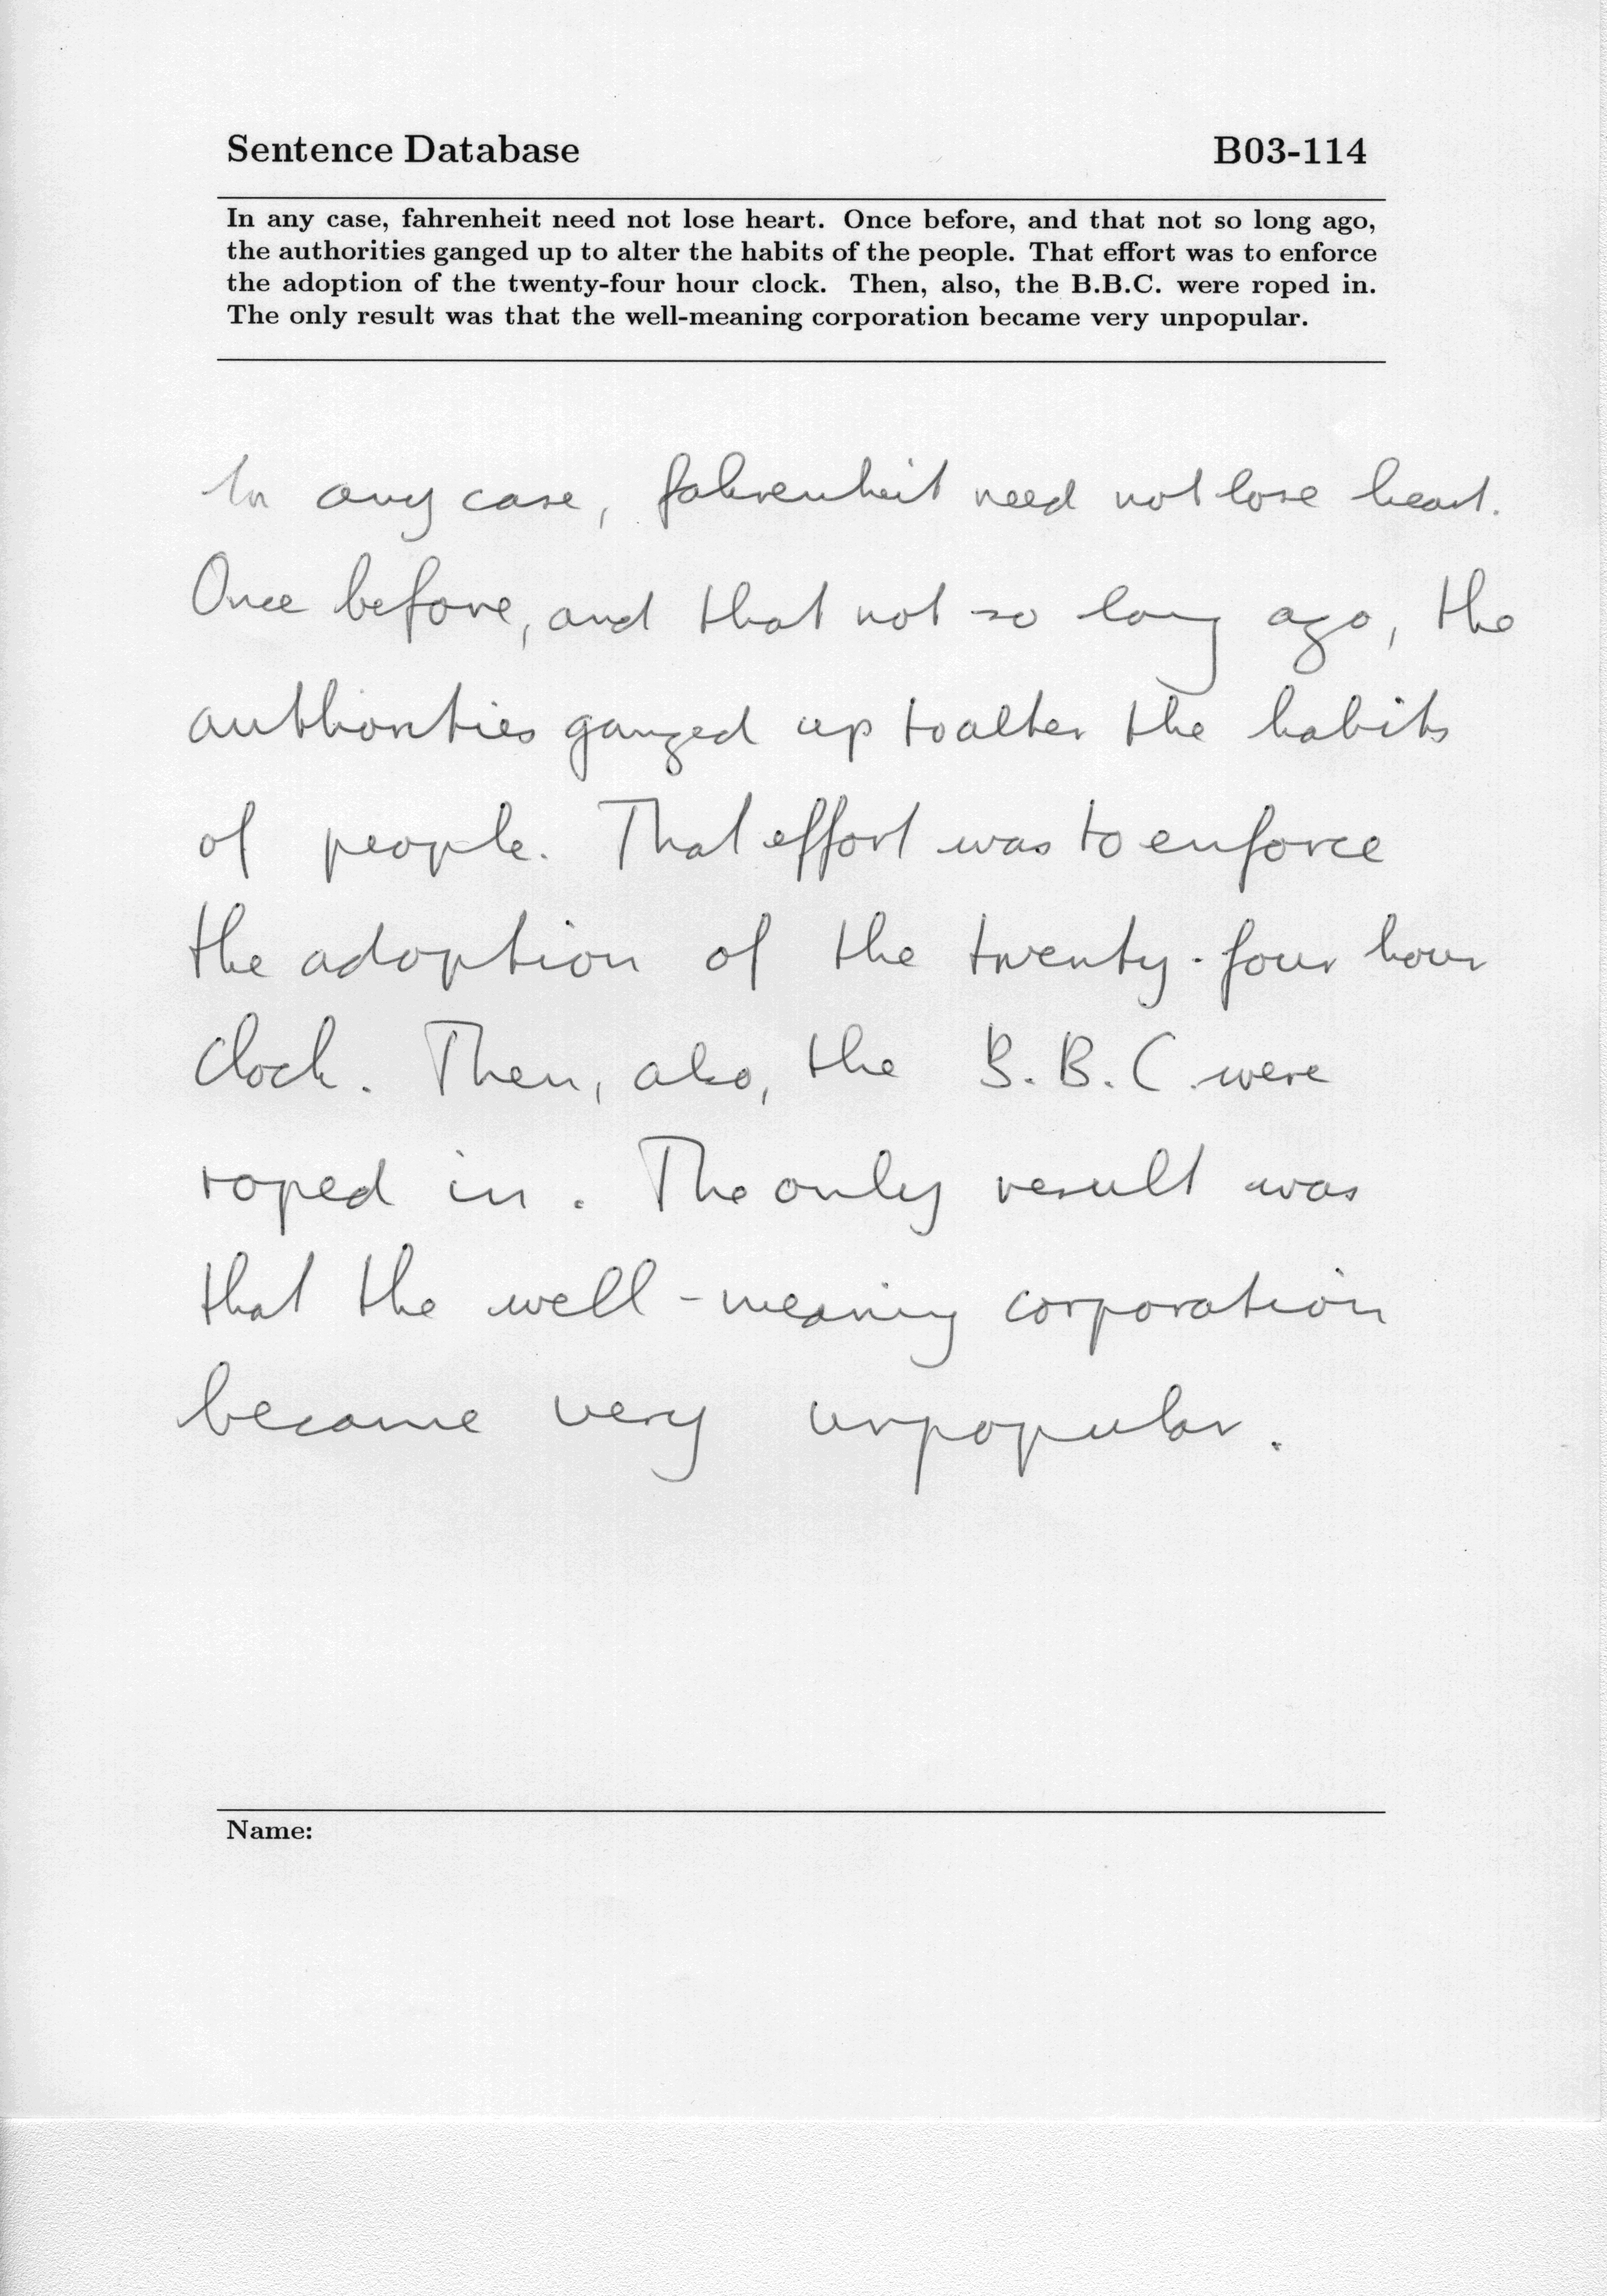 Sentence Database B03-114
In any case, fahrenheit need not lose heart. Once before, and that not so long ago,
the authorities ganged up to alter the habits of the people. That effort was to enforce
the adoption of the twenty-four hour clock. Then, also, the B.B.C. were roped in.
The only result was that the well-meaning corporation became very unpopular.
In any case, fahrenheit need not lose heart.
Once before, and that not so long ago, the
authorities ganged up to alter the habits
of people. That effort was to enforce
the adoption of the twenty-four hour
clock. Then, also, the B.B.C. were
roped in. The only result was
that the well-meaning corporation
became very unpopular.
Name: